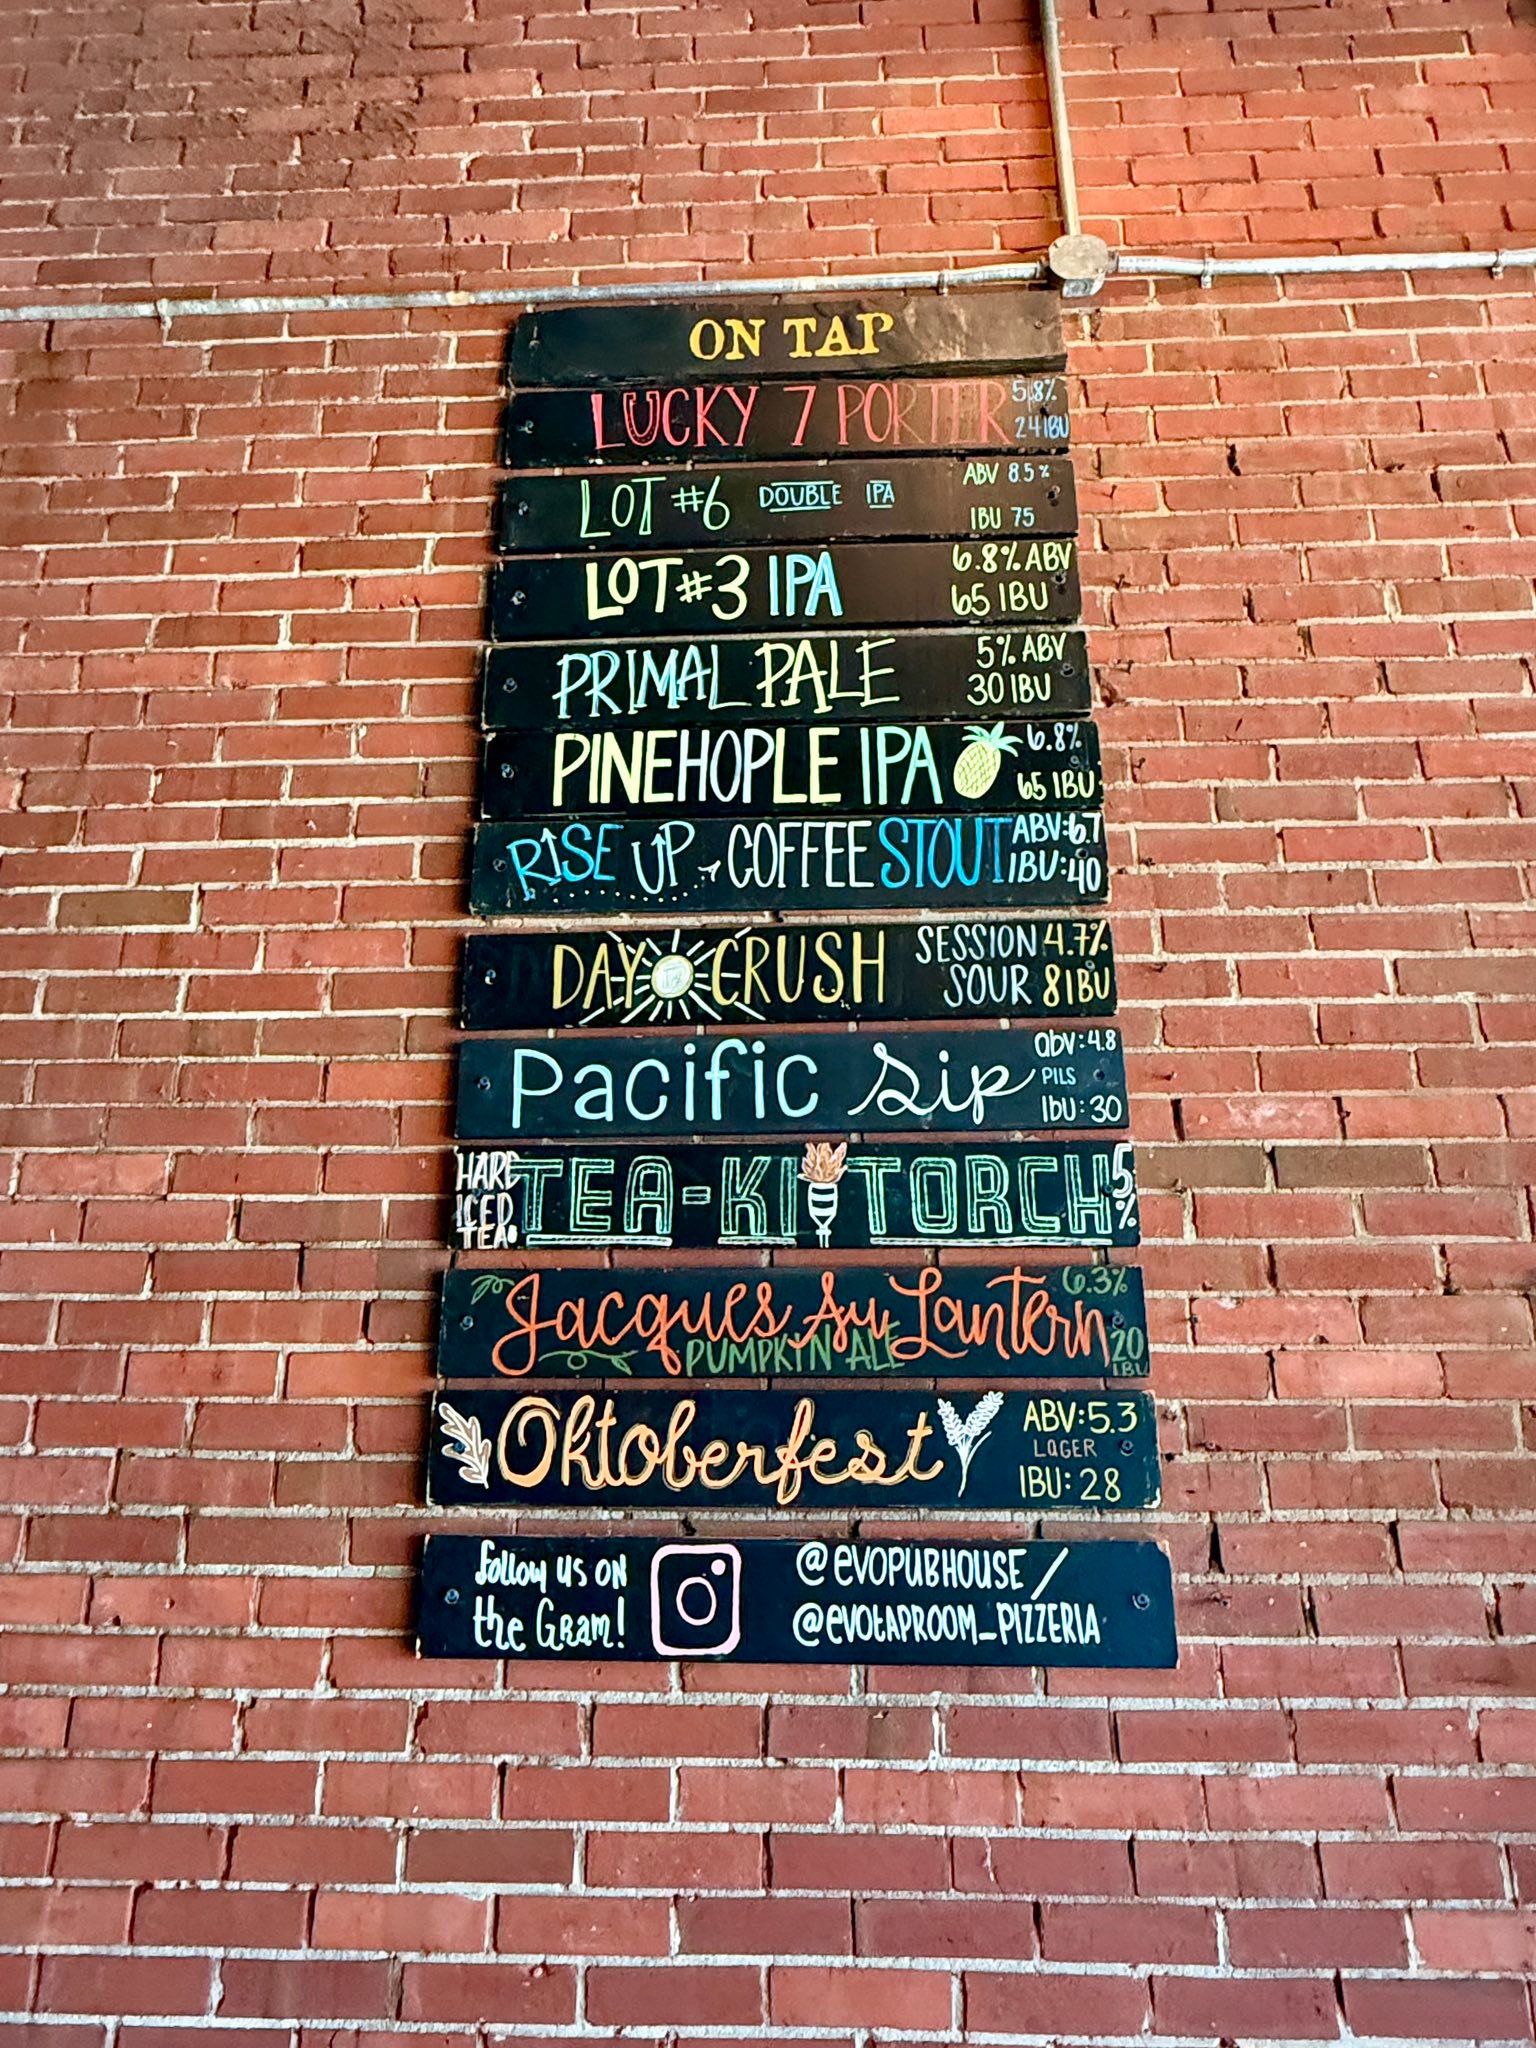 ON TAP
LUCKY 7 PORTER 5.8% 24 IBU
LOT #6 DOUBLE IPA ABV 8.5% IBU 75
LOT #3 IPA 6.8% ABV 65 IBU
PRIMAL PALE 5% ABV 30 IBU
PINEHOPLE IPA 6.8% 65 IBU
RISE UP COFFEE STOUT ABV:6.7 IBU:40
DAY CRUSH SESSION SOUR 4.7% 8 IBU
Pacific Sip abv:4.8 PILS Ibu:30
HARD ICED TEA TEA-KI TORCH 5%
Jacques Au Lantern 6.3%
PUMPKYN ALE 20 IBU
Oktoberfest ABV:5.3 LAGER IBU:28
follow us on the Gram! @EVOPUBHOUSE /
@EVOTAPROOM_PIZZERIA